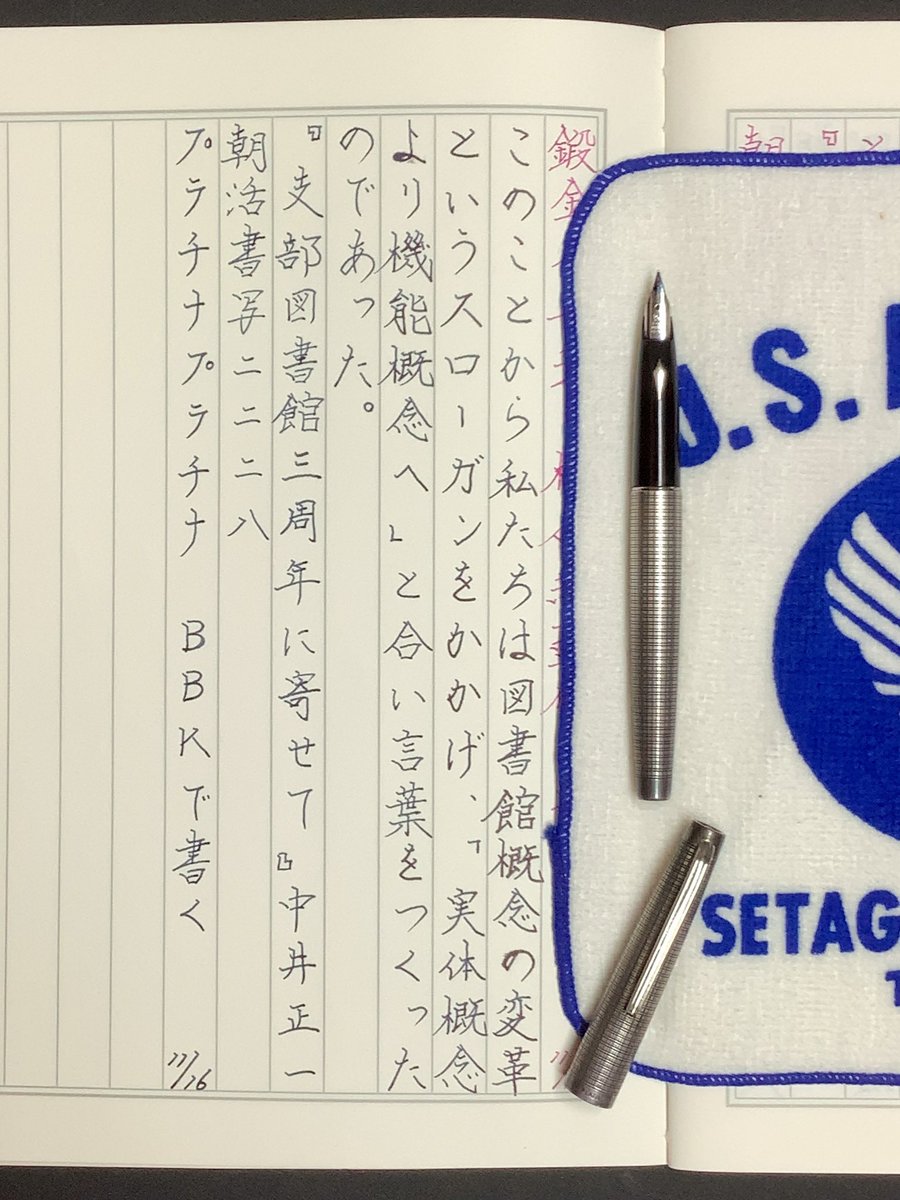 鍛金
このことから私たちは図書館概念の変革
というスローガンをかかげ、「実体概念
より機能概念へ」と合い言葉をつくった
のであった。
『支部図書館三周年に寄せて』中井正一
朝活書写二二二八
プラチナプラチナ BBKで書く 11/16
U.S.
SETAG